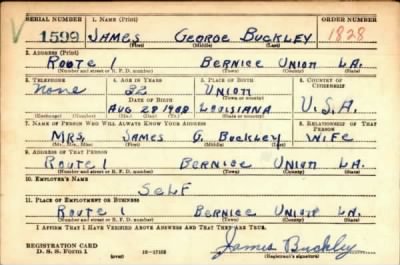 SERIAL NUMBER 1. NAME (Print) ORDER NUMBER
V 1599 JAMES GEORGE BUCKLEY 1828
(First) (Middle) (Last)
2. ADDRESS (Print)
ROUTE 1 BERNICE UNION LA.
(Number and street or R. F. D. number) (Town) (County) (State)
3. TELEPHONE 4. AGE IN YEARS 5. PLACE OF BIRTH 6. COUNTRY OF CITIZENSHIP
None 32 UNION
DATE OF BIRTH (Town or county)
AUG 28 1908 LOUISIANA U.S.A.
(Exchange) (Number) (Mo.) (Day) (Yr.) (State or country)
7. NAME OF PERSON WHO WILL ALWAYS KNOW YOUR ADDRESS 8. RELATIONSHIP OF THAT PERSON
MRS. JAMES G. BUCKLEY WIFE
(Mr., Mrs., Miss) (First) (Middle) (Last)
9. ADDRESS OF THAT PERSON
ROUTE 1 BERNICE UNION LA.
(Number and street or R. F. D. number) (Town) (County) (State)
10. EMPLOYER'S NAME
SELF
11. PLACE OF EMPLOYMENT OR BUSINESS
ROUTE 1 BERNICE UNION LA.
(Number and street or R. F. D. number) (Town) (County) (State)
I AFFIRM THAT I HAVE VERIFIED ABOVE ANSWERS AND THAT THEY ARE TRUE.
REGISTRATION CARD James Buckley
D. S. S. Form 1 (over) 16-17105 (Registrant's signature)